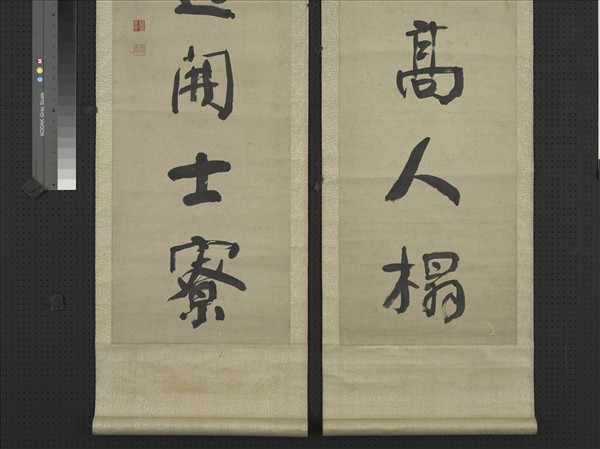 髙人榻
開士寮
KODAK Gray Scale